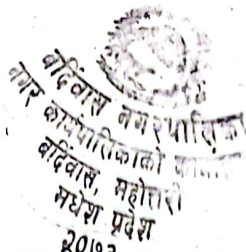 बर्दिबास नगरपालिका
नगर कार्यपालिकाको कार्यालय
बर्दिबास, महोत्तरी
मधेश प्रदेश
२०७३